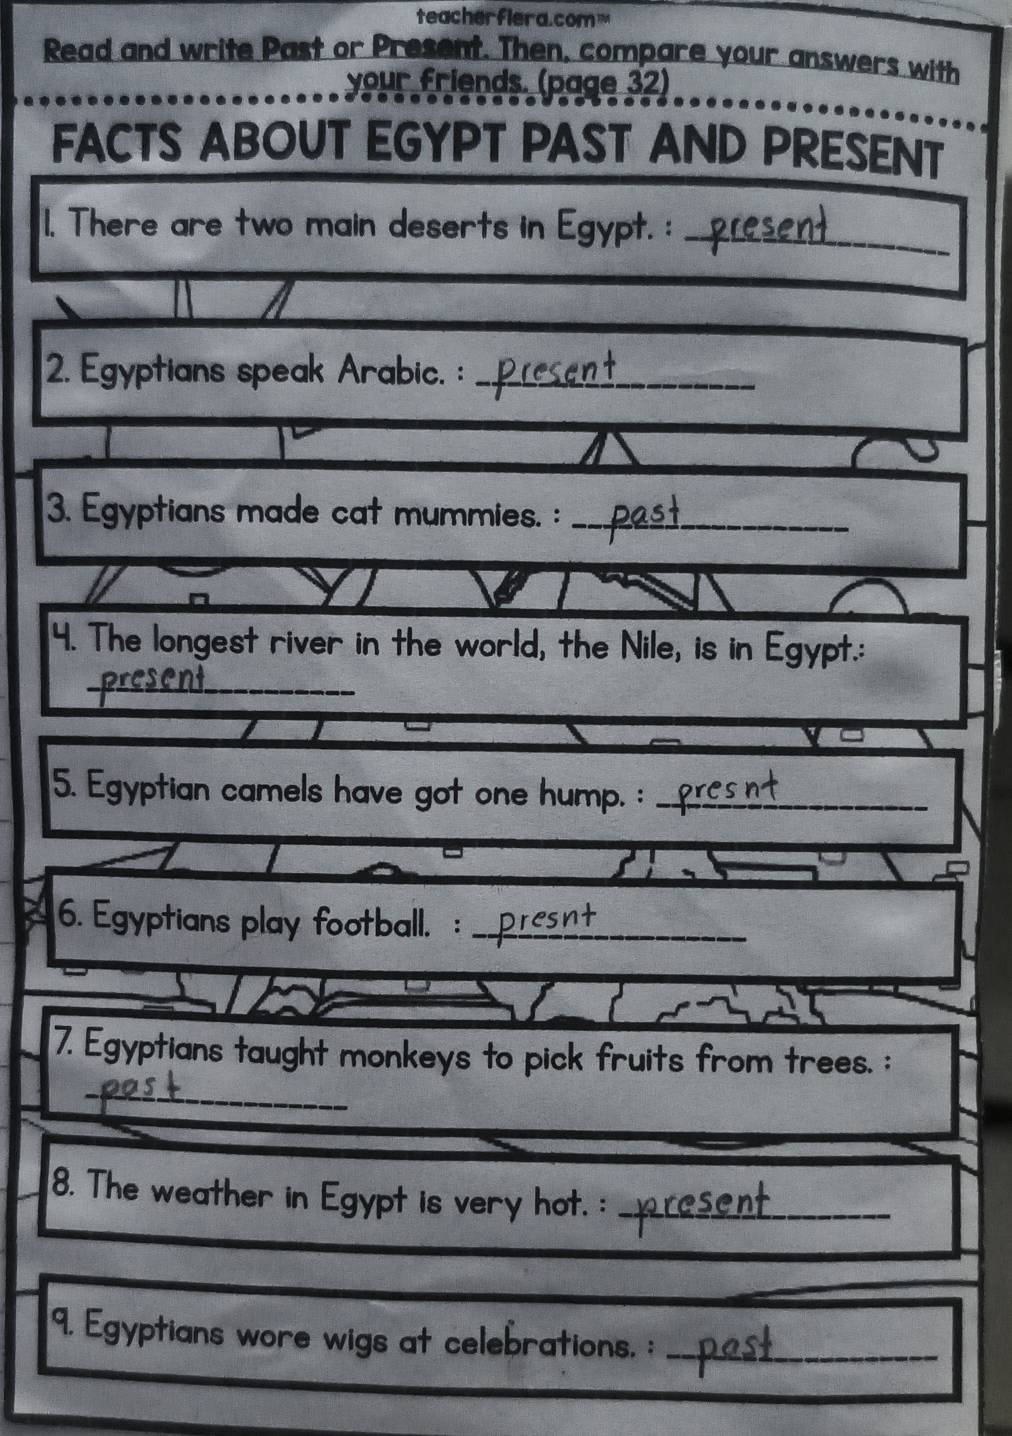 teacherfiera.com™
Read and write Past or Present. Then, compare your answers with
your friends. (page 32)
FACTS ABOUT EGYPT PAST AND PRESENT
1. There are two main deserts in Egypt. : present
2. Egyptians speak Arabic. : present
3. Egyptians made cat mummies. : past
4. The longest river in the world, the Nile, is in Egypt.:
present
5. Egyptian camels have got one hump. : presnt
6. Egyptians play football. : presnt
7. Egyptians taught monkeys to pick fruits from trees. :
past
8. The weather in Egypt is very hot. : present
9. Egyptians wore wigs at celebrations. : past